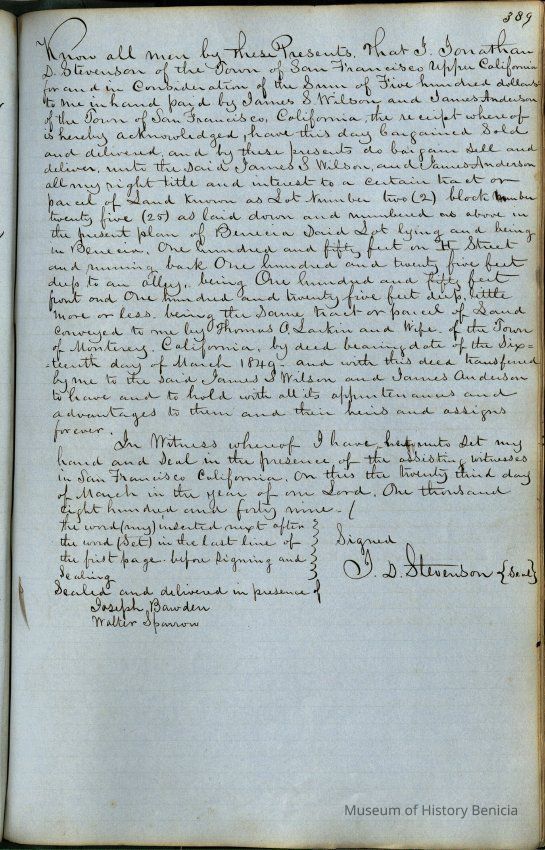 389
Know all men by these Presents, that I. Jonathan
D. Stevenson of the Town of San Francisco Upper California
for and in Consideration of the Sum of Five hundred dollars
to me in hand paid by James S Wilson and James Anderson
of the Town of San Francisco, California, the receipt whereof
is hereby acknowledged, have this day bargained Sold
and delivered and by these presents do bargain Sell and
deliver, unto the said James S Wilson, and James Anderson
all my right title and interest to a certain tract or
parcel of Land Known as Lot Number two (2) block Number
twenty five (25) as laid down and numbered as above in
the present plan of Benicia Said Lot lying and being
in Benicia, One hundred and fifty feet on H Street
and running back One hundred and twenty five feet
deep to an alley, being One hundred and fifty feet
front and One hundred and twenty five feet deep, little
more or less, being the Same tract or parcel of Land
Conveyed to me by Thomas O. Larkin and Wife of the Town
of Monterey, California, by deed bearing date of the Six=
teenth day of March 1849. and with this deed transfered
by me to the said James S Wilson and James Anderson
to have and to hold with all its appurtenances and
advantages to them and their heirs and assigns
forever.
In Witness whereof I have hereunto Set my
hand and Seal in the presence of the assisting witnesses
in San Francisco California. On this the twenty third day
of March in the year of our Lord, One thousand
Eight hundred and forty nine. /
the word (my) inserted next after
the word (Set) in the last line of
the first page. before Signing and
Sealing
Signed
J. D. Stevenson {Seal}
Sealed and delivered in presence
Joseph Bawden
Walter Sparrow
Museum of History Benicia